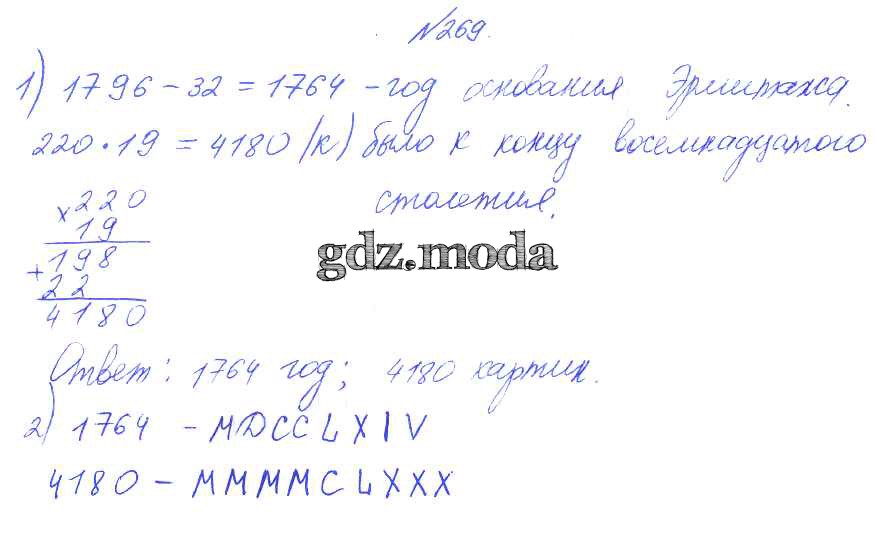 №269.
1) 1796 - 32 = 1764 - год основания Эрмитажа.
220 · 19 = 4180 (к) было к концу восемнадцатого
столетия.
× 220
19
+ 198
22
4180
gdz.moda
Ответ: 1764 год; 4180 картин.
2) 1764 - MDCCLXIV
4180 - MMMMCLXXX